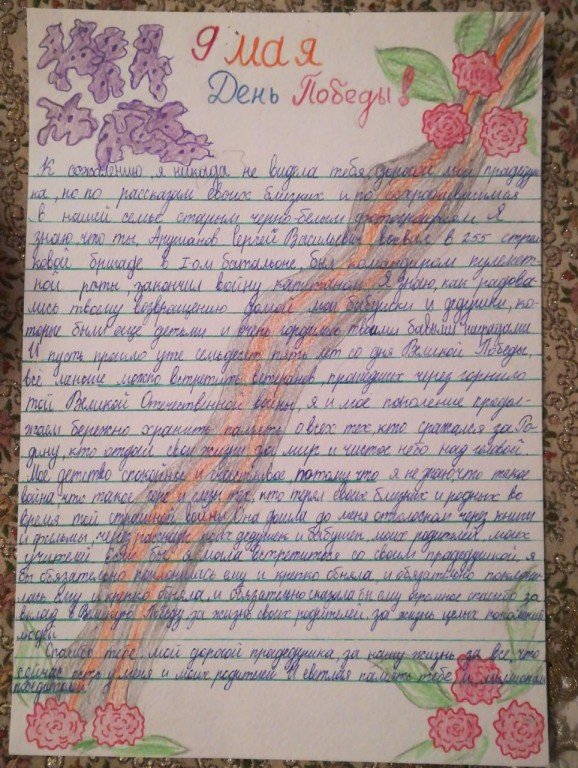 9 мая
День Победы!
К сожалению, я никогда не видела тебя, дорогой мой прадедуш-
ка, но по рассказам своих близких и по сохранившимся
в нашей семье старым черно-белым фотографиям. Я
знаю, что ты, Сергей Васильевич воевал в 255 стрел-
ковой бригаде в I-ом батальоне, был командиром пулемет-
ной роты, закончил войну капитаном. Я знаю, как радова-
лись твоему возвращению домой мои бабушки и дедушки, ко-
торые были еще детьми и очень гордились твоими наградами
И пусть прошло уже семьдесят пять лет со дня Великой Победы,
всё меньше можно встретить ветеранов, прошедших через горнило
той Великой Отечественной войны, я и мое поколение продол-
жаем бережно хранить память о всех тех, кто сражался за Ро-
дину, кто отдал свои жизни за мир и чистое небо над головой.
Мое детство спокойное и счастливое, потому что я не знаю что такое
война, что такое горе и слезы тех, кто терял своих близких и родных во
время той страшной войны. Она дошла до меня отголоском через книги
и фильмы, через рассказы моих дедушек и бабушек, моих родителей, моих
учителей. Если бы я могла встретиться со своим прадедушкой, я
бы обязательно поклонилась ему и крепко обняла, и обязательно поклони-
лась ему и крепко обняла, и обязательно сказала бы ему огромное спасибо за
вклад в Великую Победу, за жизнь своих родителей, за жизнь целых поколений
людей.
Спасибо тебе, мой дорогой прадедушка, за нашу жизнь, за все, что
сейчас есть у меня и моих родителей. И светлая память тебе и миллионам
победителей.